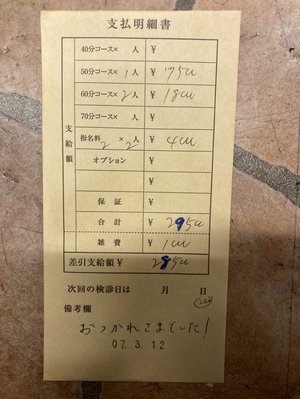 支払明細書
40分コース× 人 ¥
50分コース× 1人 ¥ 7500
60分コース× 2人 ¥ 18000
70分コース× 人 ¥
支給額
指名料 2 × 2 人 ¥ 4000
オプション ¥
¥
保証 ¥
合計 ¥ 29500
雑費 ¥ 1000
差引支給額 ¥ 28500
次回の検診日は 月 日
備考欄
おつかれさまでした!
07.3.12